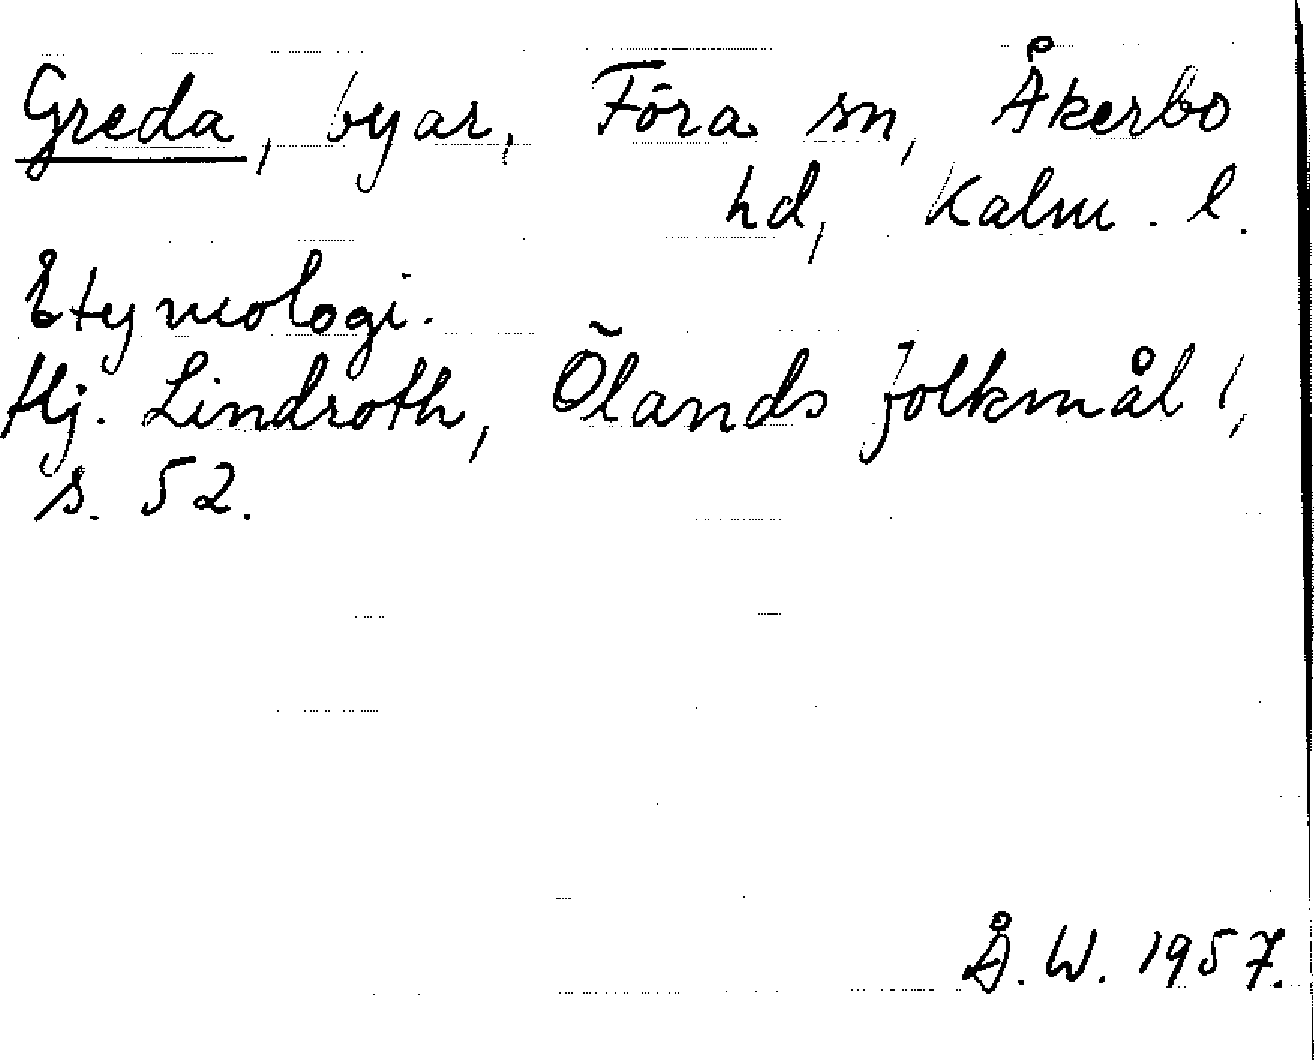 Greda, byar, Föra sn, Åkerbo
hd, Kalm. l.
Etymologi.
Hj. Lindroth, Ölands folkmål 1,
s. 52.
Å. W. 1957.